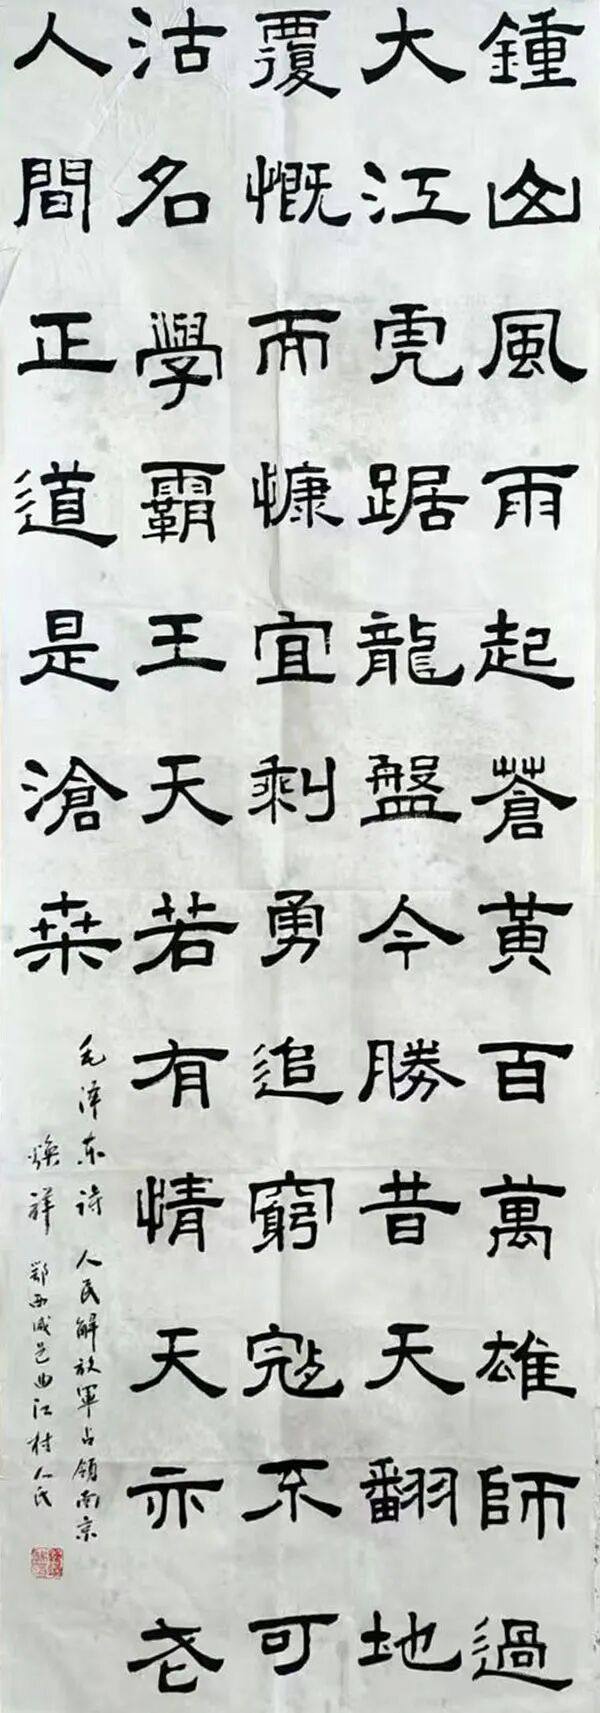 鍾山風雨起蒼黃百萬雄師過
大江虎踞龍盤今勝昔天翻地
覆慨而慷宜剩勇追窮寇不可
沽名學霸王天若有情天亦老
人間正道是滄桒
毛泽东诗 人民解放軍占領南京
焕祥 鄂西咸邑曲江村人氏